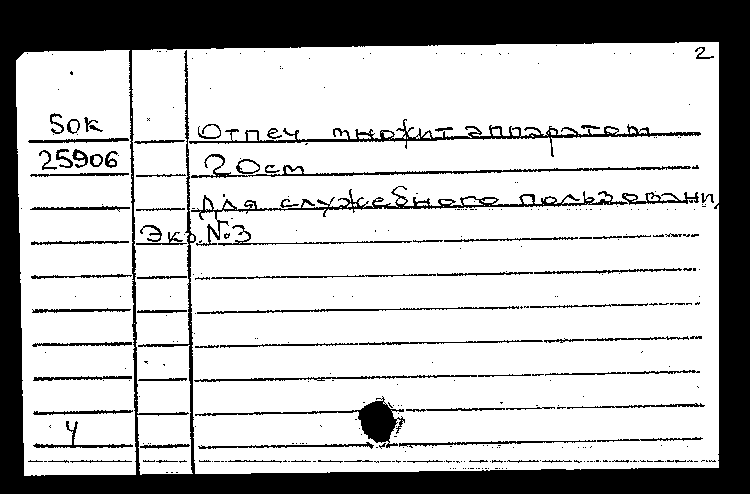 2
50к Отпеч. множит аппаратом
25906 20см
Для служебного пользовани
Экз. №3
4